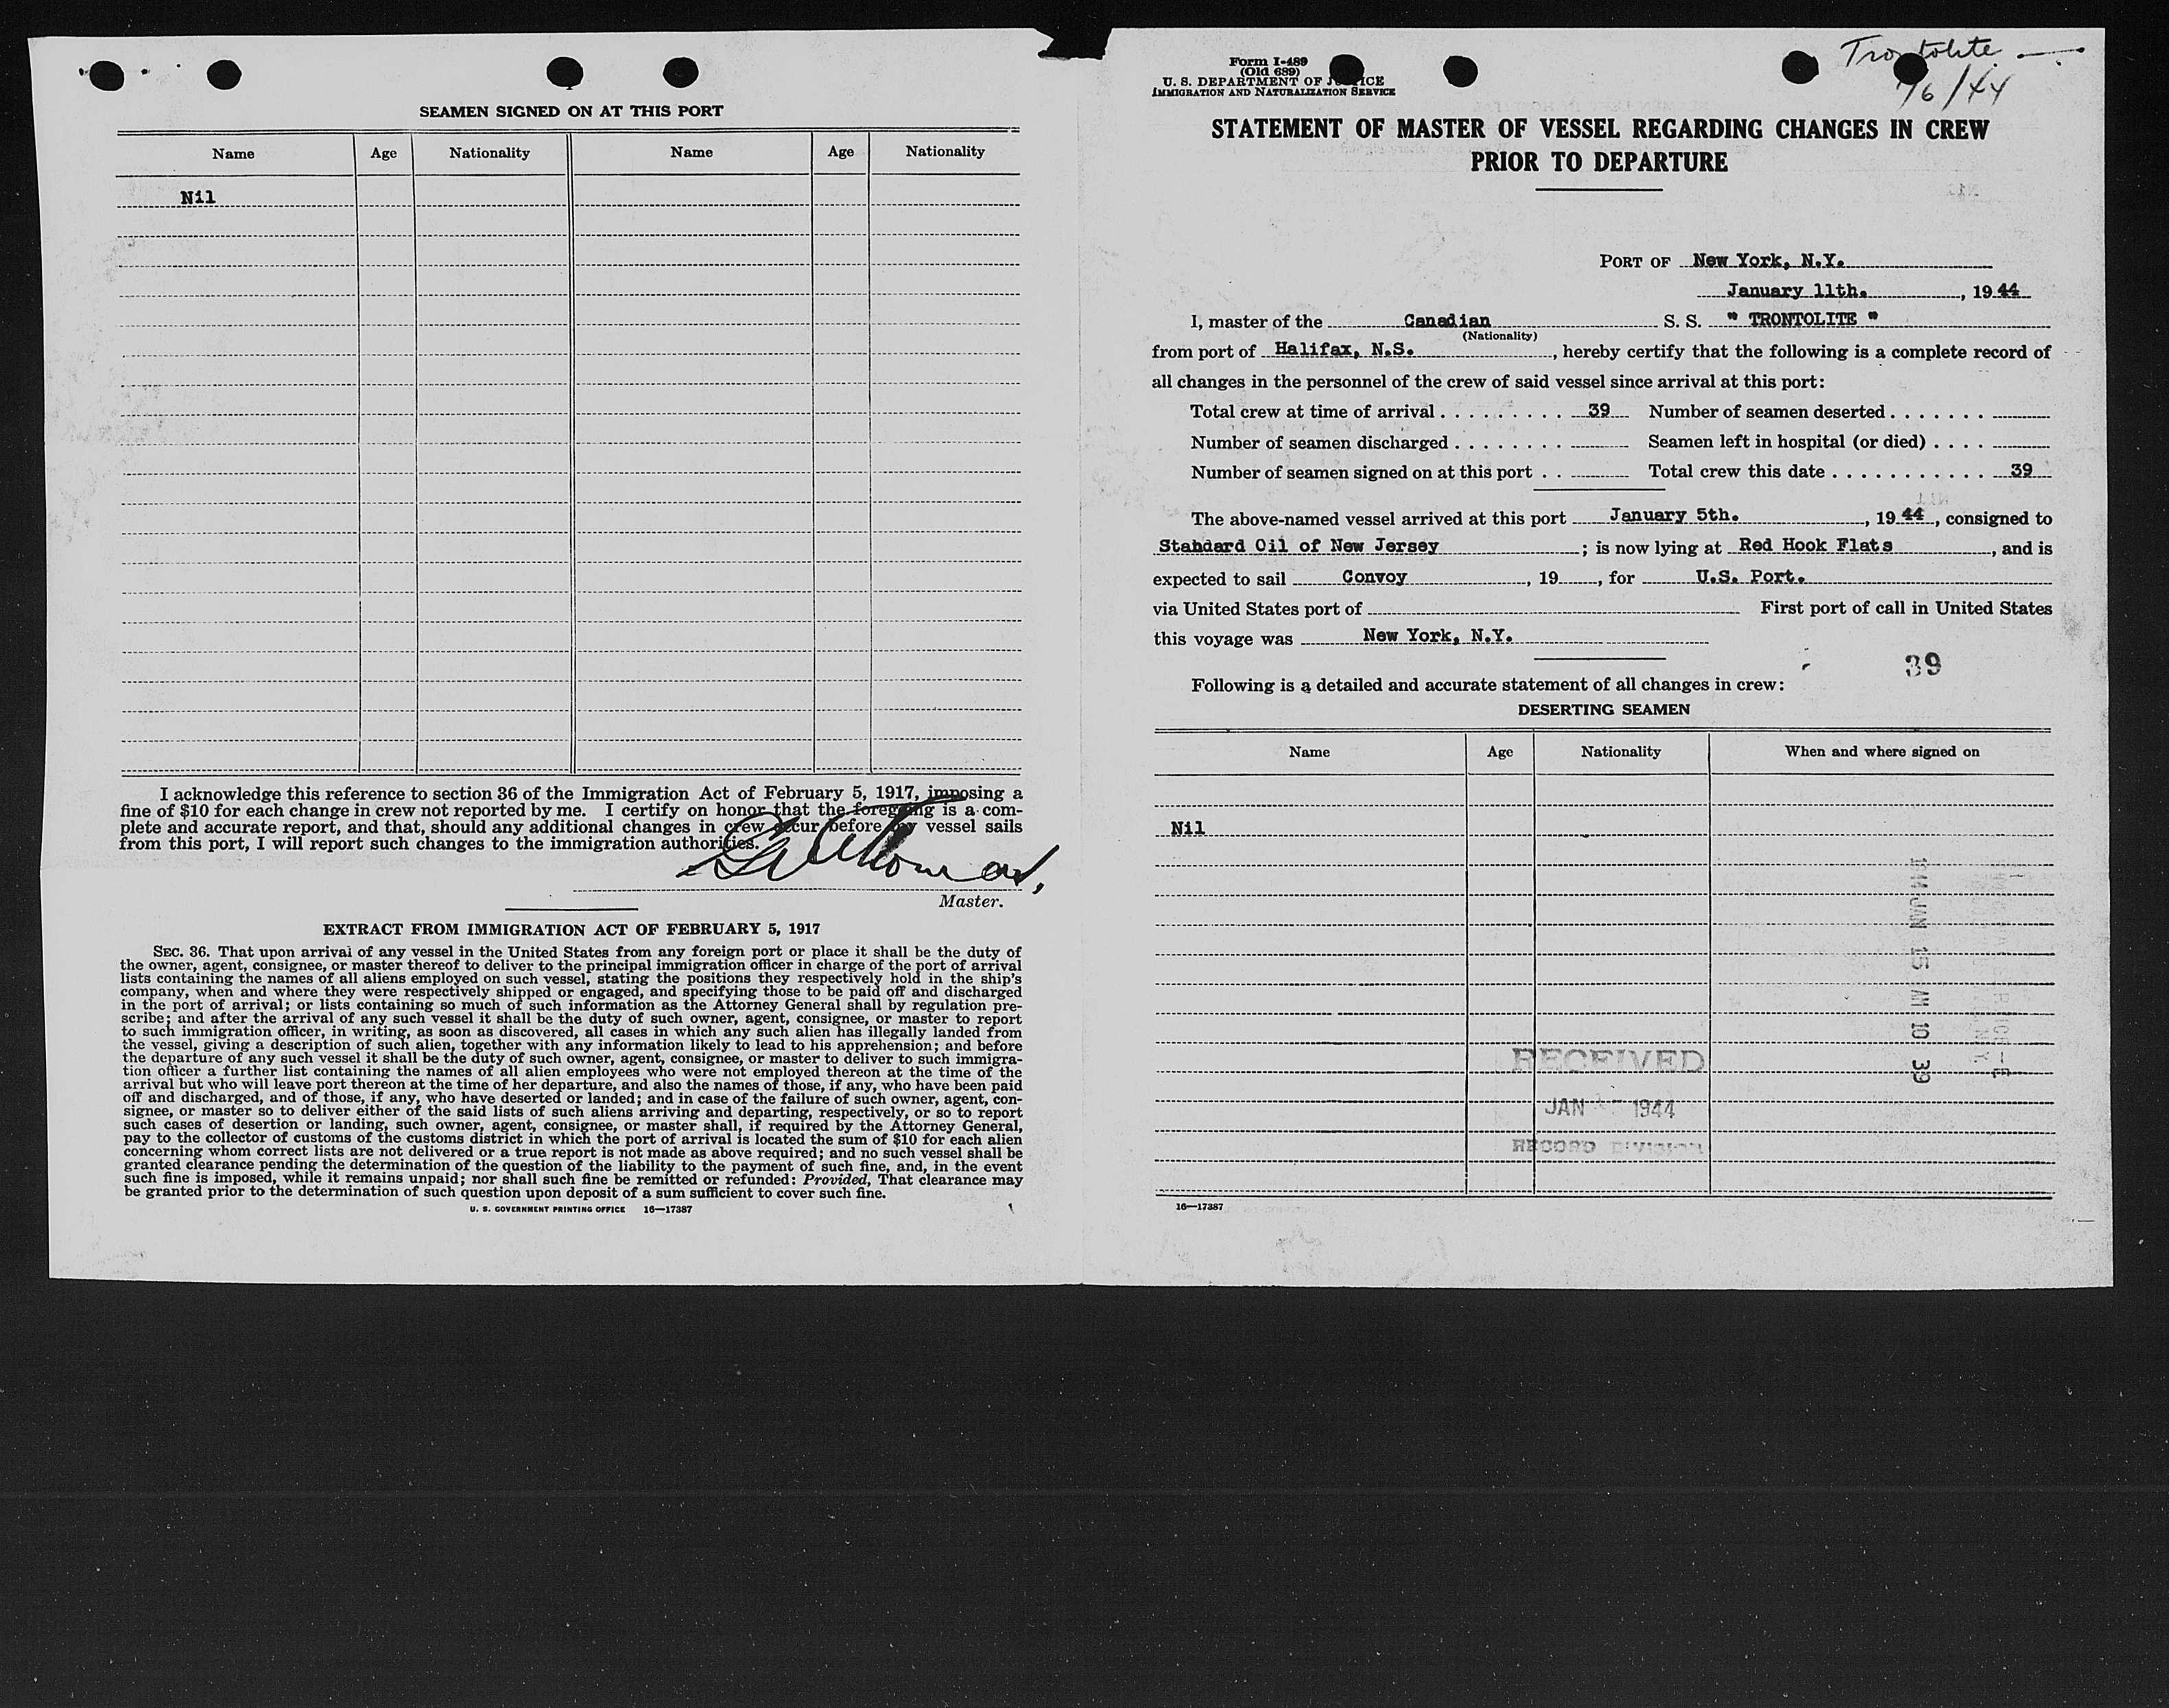 SEAMEN SIGNED ON AT THIS PORT
Name Age Nationality Name Age Nationality
Nil
I acknowledge this reference to section 36 of the Immigration Act of February 5, 1917, imposing a
fine of $10 for each change in crew not reported by me. I certify on honor that the foregoing is a com-
plete and accurate report, and that, should any additional changes in crew occur before my vessel sails
from this port, I will report such changes to the immigration authorities.
Master.
EXTRACT FROM IMMIGRATION ACT OF FEBRUARY 5, 1917
SEC. 36. That upon arrival of any vessel in the United States from any foreign port or place it shall be the duty of
the owner, agent, consignee, or master thereof to deliver to the principal immigration officer in charge of the port of arrival
lists containing the names of all aliens employed on such vessel, stating the positions they respectively hold in the ship's
company, when and where they were respectively shipped or engaged, and specifying those to be paid off and discharged
in the port of arrival; or lists containing so much of such information as the Attorney General shall by regulation pre-
scribe; and after the arrival of any such vessel it shall be the duty of such owner, agent, consignee, or master to report
to such immigration officer, in writing, as soon as discovered, all cases in which any such alien has illegally landed from
the vessel, giving a description of such alien, together with any information likely to lead to his apprehension; and before
the departure of any such vessel it shall be the duty of such owner, agent, consignee, or master to deliver to such immigra-
tion officer a further list containing the names of all alien employees who were not employed thereon at the time of the
arrival but who will leave port thereon at the time of her departure, and also the names of those, if any, who have been paid
off and discharged, and of those, if any, who have deserted or landed; and in case of the failure of such owner, agent, con-
signee, or master so to deliver either of the said lists of such aliens arriving and departing, respectively, or so to report
such cases of desertion or landing, such owner, agent, consignee, or master shall, if required by the Attorney General,
pay to the collector of customs of the customs district in which the port of arrival is located the sum of $10 for each alien
concerning whom correct lists are not delivered or a true report is not made as above required; and no such vessel shall be
granted clearance pending the determination of the question of the liability to the payment of such fine, and, in the event
such fine is imposed, while it remains unpaid; nor shall such fine be remitted or refunded: Provided, That clearance may
be granted prior to the determination of such question upon deposit of a sum sufficient to cover such fine.
U. S. GOVERNMENT PRINTING OFFICE 16—17387
Form I-489
(Old 689)
U. S. DEPARTMENT OF JUSTICE
IMMIGRATION AND NATURALIZATION SERVICE
Trontolite
1/6/44
STATEMENT OF MASTER OF VESSEL REGARDING CHANGES IN CREW
PRIOR TO DEPARTURE
PORT OF New York, N.Y.
January 11th. , 1944
I, master of the Canadian S. S. " TRONTOLITE "
(Nationality)
from port of Halifax, N.S. , hereby certify that the following is a complete record of
all changes in the personnel of the crew of said vessel since arrival at this port:
Total crew at time of arrival . . . . . . . . . 39 Number of seamen deserted . . . . . . .
Number of seamen discharged . . . . . . . . Seamen left in hospital (or died) . . . .
Number of seamen signed on at this port . . Total crew this date . . . . . . . . . . . 39
The above-named vessel arrived at this port January 5th. , 19 44 , consigned to
Standard Oil of New Jersey ; is now lying at Red Hook Flats , and is
expected to sail Convoy , 19 , for U.S. Port.
via United States port of First port of call in United States
this voyage was New York, N.Y.
39
Following is a detailed and accurate statement of all changes in crew:
DESERTING SEAMEN
Name Age Nationality When and where signed on
Nil
1944 JAN 15 AM 10 39
RECEIVED
JAN 1944
RECORD DIVISION
16—17387